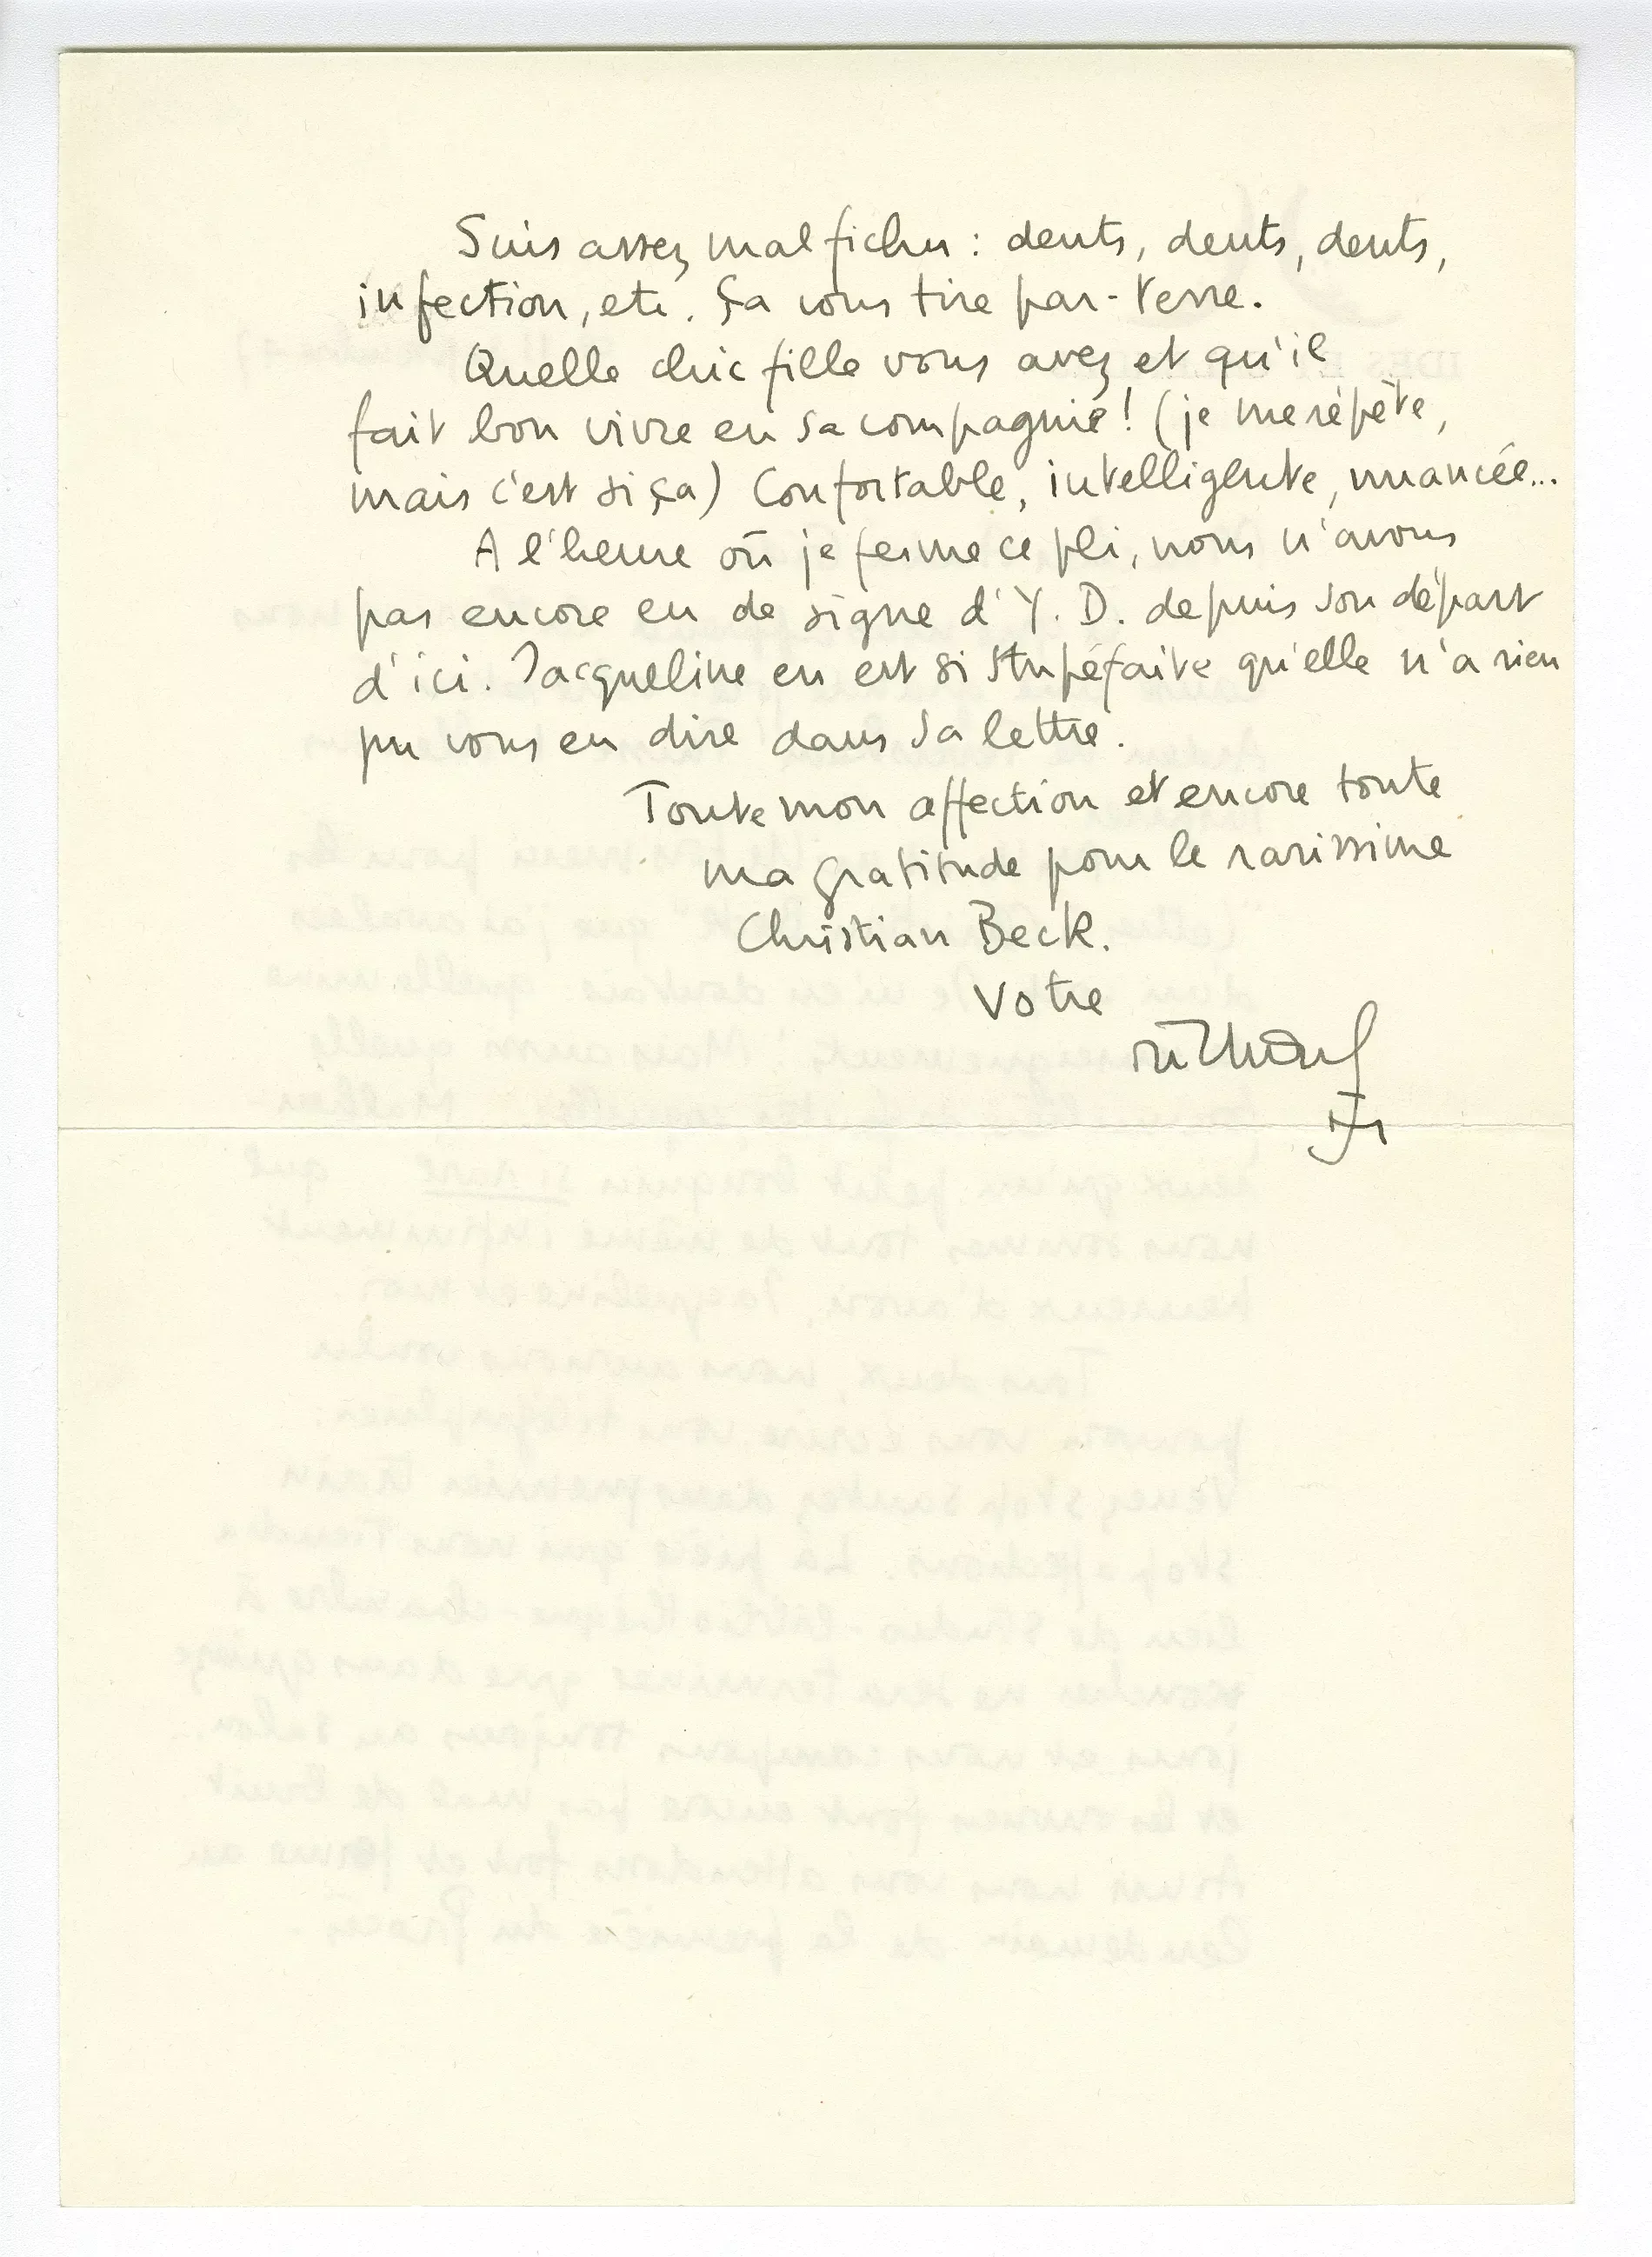 Suis assez mal fichu : dents, dents, dents,
infection, etc. Ça vous tire par-terre.
Quelle chic fille vous avez et qu'il
fait bon vivre en sa compagnie ! (je me répète,
mais c'est si ça) Confortable, intelligente, nuancée...
A l'heure où je ferme ce pli, nous n'avons
pas encore eu de signe d'Y. D. depuis son départ
d'ici. Jacqueline en est si stupéfaite qu'elle n'a rien
pu vous en dire dans sa lettre.
Toute mon affection et encore toute
ma gratitude pour le rarissime
Christian Beck.
Votre